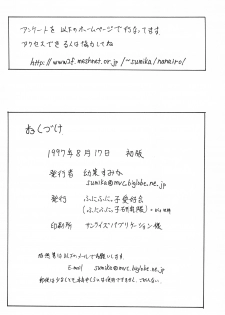 アンケートを以下のホームページで行なってます
アクセスできる人は協力してね
http://www2f.meshnet.or.jp/~sumika/nanairo/
おくづけ
1997年8月17日 初版
発行者 幼巣すみか
sumika@mvc.biglobe.ne.jp
発行 ふにふにっ子愛好会
(ふにふにっ子研究隊)
印刷所 サンライズパブリケーション様
感想等は以下のメールでお願いします
E-mail sumika@mvc.biglobe.ne.jp